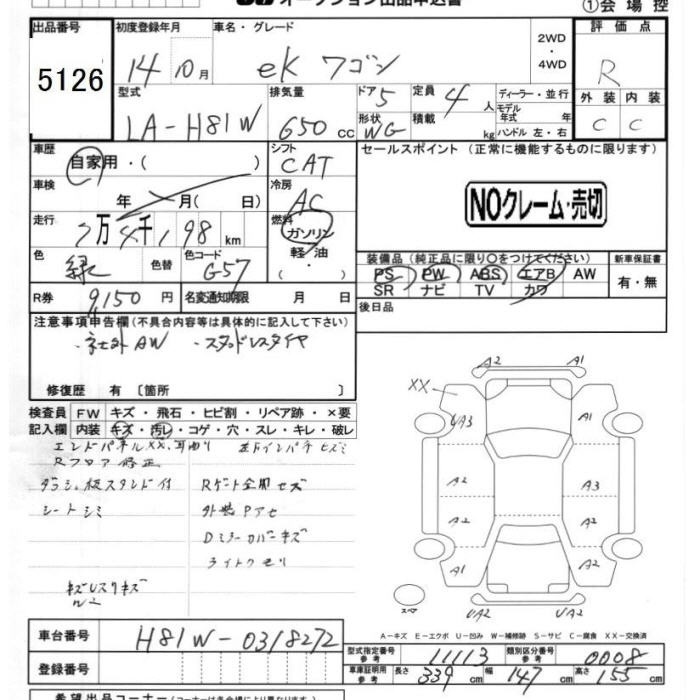 オークション出品申込書
①会場控
出品番号 初度登録年月 車名・グレード 2WD・4WD 評価点
5126 14 10月 eK ワゴン R
型式 排気量 ドア 5 定員 4人 ディーラー・並行 外装 内装
モデル年式 年
LA-H81W 650cc 形状 WG 積載 kg ハンドル 左・右 C C
車歴 自家用・( ) シフト CAT セールスポイント (正常に機能するものに限ります)
車検 年 月( 日) 冷房 AC
NOクレーム・売切
走行 7万4千198km 燃料 ガソリン 軽油 ( ・ )
色 緑 色替 色コード G57
装備品(純正品に限り○をつけてください) 新車保証書
PS PW ABS エアB AW 有・無
SR ナビ TV カワ
R券 9,150円 名変通知期限 月 日 後日品
注意事項申告欄(不具合内容等は具体的に記入して下さい)
・社外AW ・スタッドレスタイヤ
修復歴 有 [箇所 ]
検査員記入欄 FW キズ・飛石・ヒビ割・リペア跡・×要
内装 キズ・汚レ・コゲ・穴・スレ・キレ・破レ
エンドパネルXX
Rフロア修正
シートシミ
DミラーカバーキズA2 A1
XX
UA3 A1
A2 A3
A2 A2
A1 A2
スペア UA2 UA2
A-キズ E-エクボ U-凹み W-補修跡 S-サビ C-腐食 XX-交換済
車台番号 H81W-0318272
登録番号
型式指定番号 参考 11113 類別区分番号 参考 0008
車庫証明用 参考 長さ 339cm 幅 147cm 高さ 155cm
希望出品コーナー